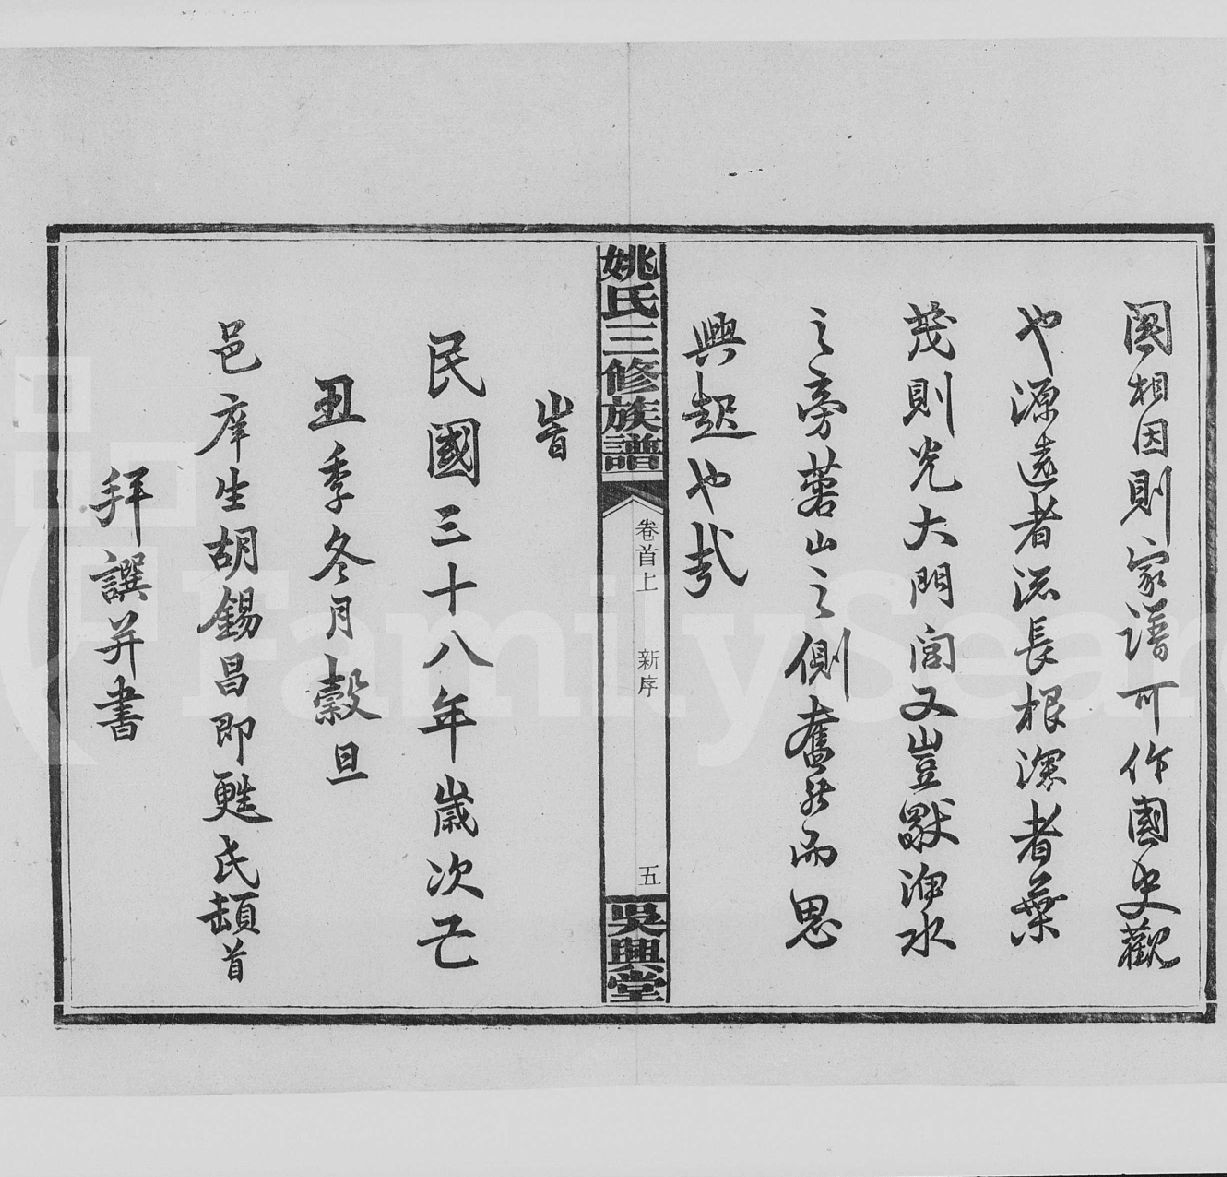 國相因則家譜可作國史觀
也源遠者流長根深者葉
茂則光大門閭又豈水
之旁山之側奮然而思
興起也哉
姚氏三修族譜
卷首上 新序 五
吳興堂
旹
民國三十八年歲次己
丑季冬月穀旦
邑庠生胡錫昌即甦氏頓首
拜譔并書
FamilySear